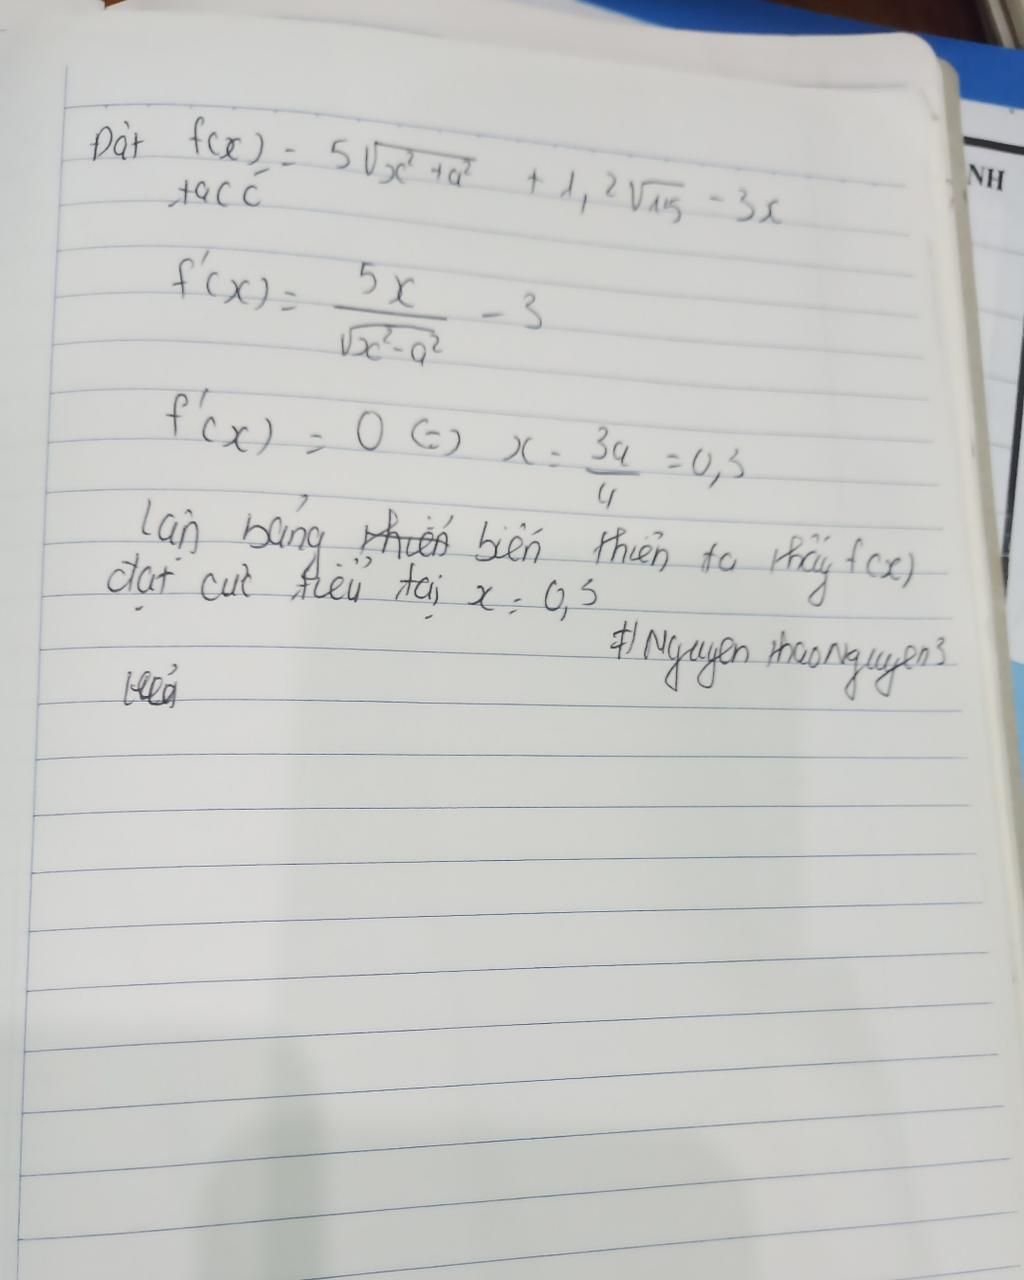 Đặt f(x) = 5√x²+a² + 1,2√1,15 - 3x
ta có
f'(x) = 5x / √x²-a² - 3
f'(x) = 0 (=) x = 3a / 4 = 0,3
Lập bảng biến thiên ta thấy f(x)
đạt cực tiểu tại x = 0,3
Nguyen thaonguyen3
NH